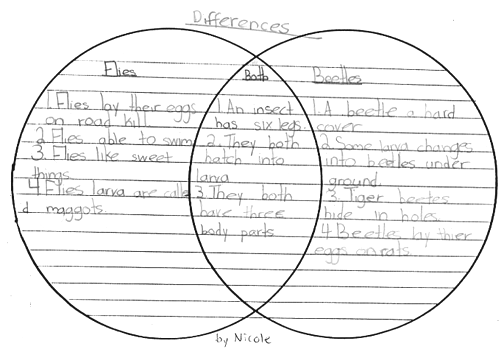 Differences
Flies
1 Flies lay their eggs
on road kill
2 Flies able to swim
3. Flies like sweet
things
4 Flies larva are calle
d maggots.
Both
1 An insect
has six legs.
2. They both
hatch into
larva
3. They both
have three
body parts
Beetles
1. A beetle a hard
cover
2 Some larva changes
into beetles under
ground.
3. Tiger beetes
hide in holes.
4 Beetles lay thier
eggs on rats.
by Nicole